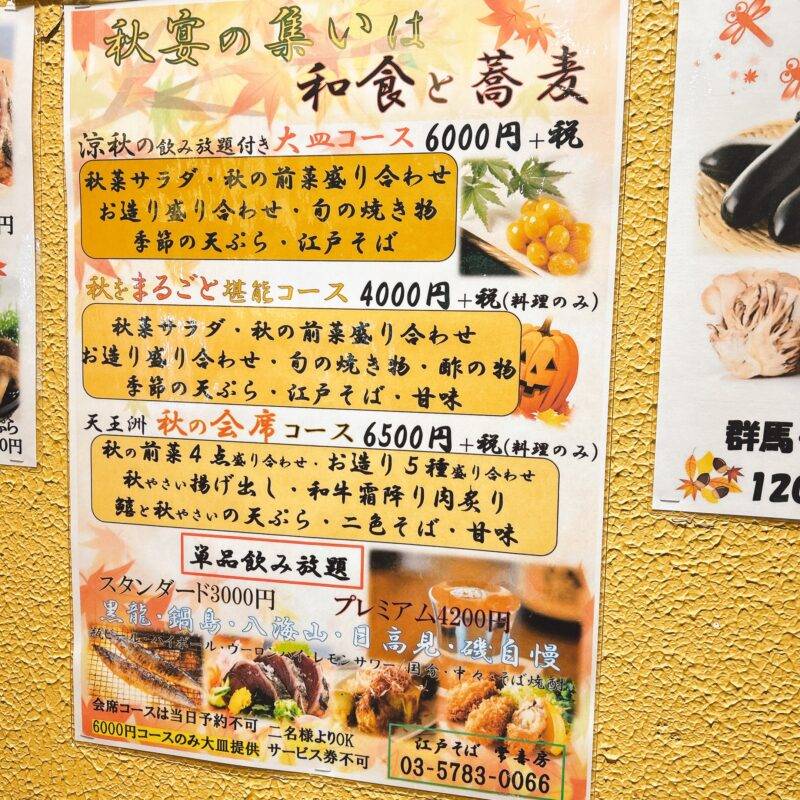 秋宴の集いは
和食と蕎麦
涼秋の飲み放題付き大皿コース 6000円+税
秋菜サラダ・秋の前菜盛り合わせ
お造り盛り合わせ・旬の焼き物
季節の天ぷら・江戸そば
秋をまるごと堪能コース 4000円+税(料理のみ)
秋菜サラダ・秋の前菜盛り合わせ
お造り盛り合わせ・旬の焼き物・酢の物
季節の天ぷら・江戸そば・甘味
天王洲 秋の会席コース 6500円+税(料理のみ)
秋の前菜4点盛り合わせ・お造り5種盛り合わせ
秋やさい揚げ出し・和牛霜降り肉炙り
鱚と秋やさいの天ぷら・二色そば・甘味
単品飲み放題
スタンダード3000円
プレミアム4200円
黒龍・鍋島・八海山・日高見・磯自慢
瓶ビール・ハイボール・ウーロンハイ・レモンサワー
そば焼酎
会席コースは当日予約不可
二名様よりOK
6000円コースのみ大皿提供
サービス券不可
江戸そば
03-5783-0066
円
0円
群馬
120